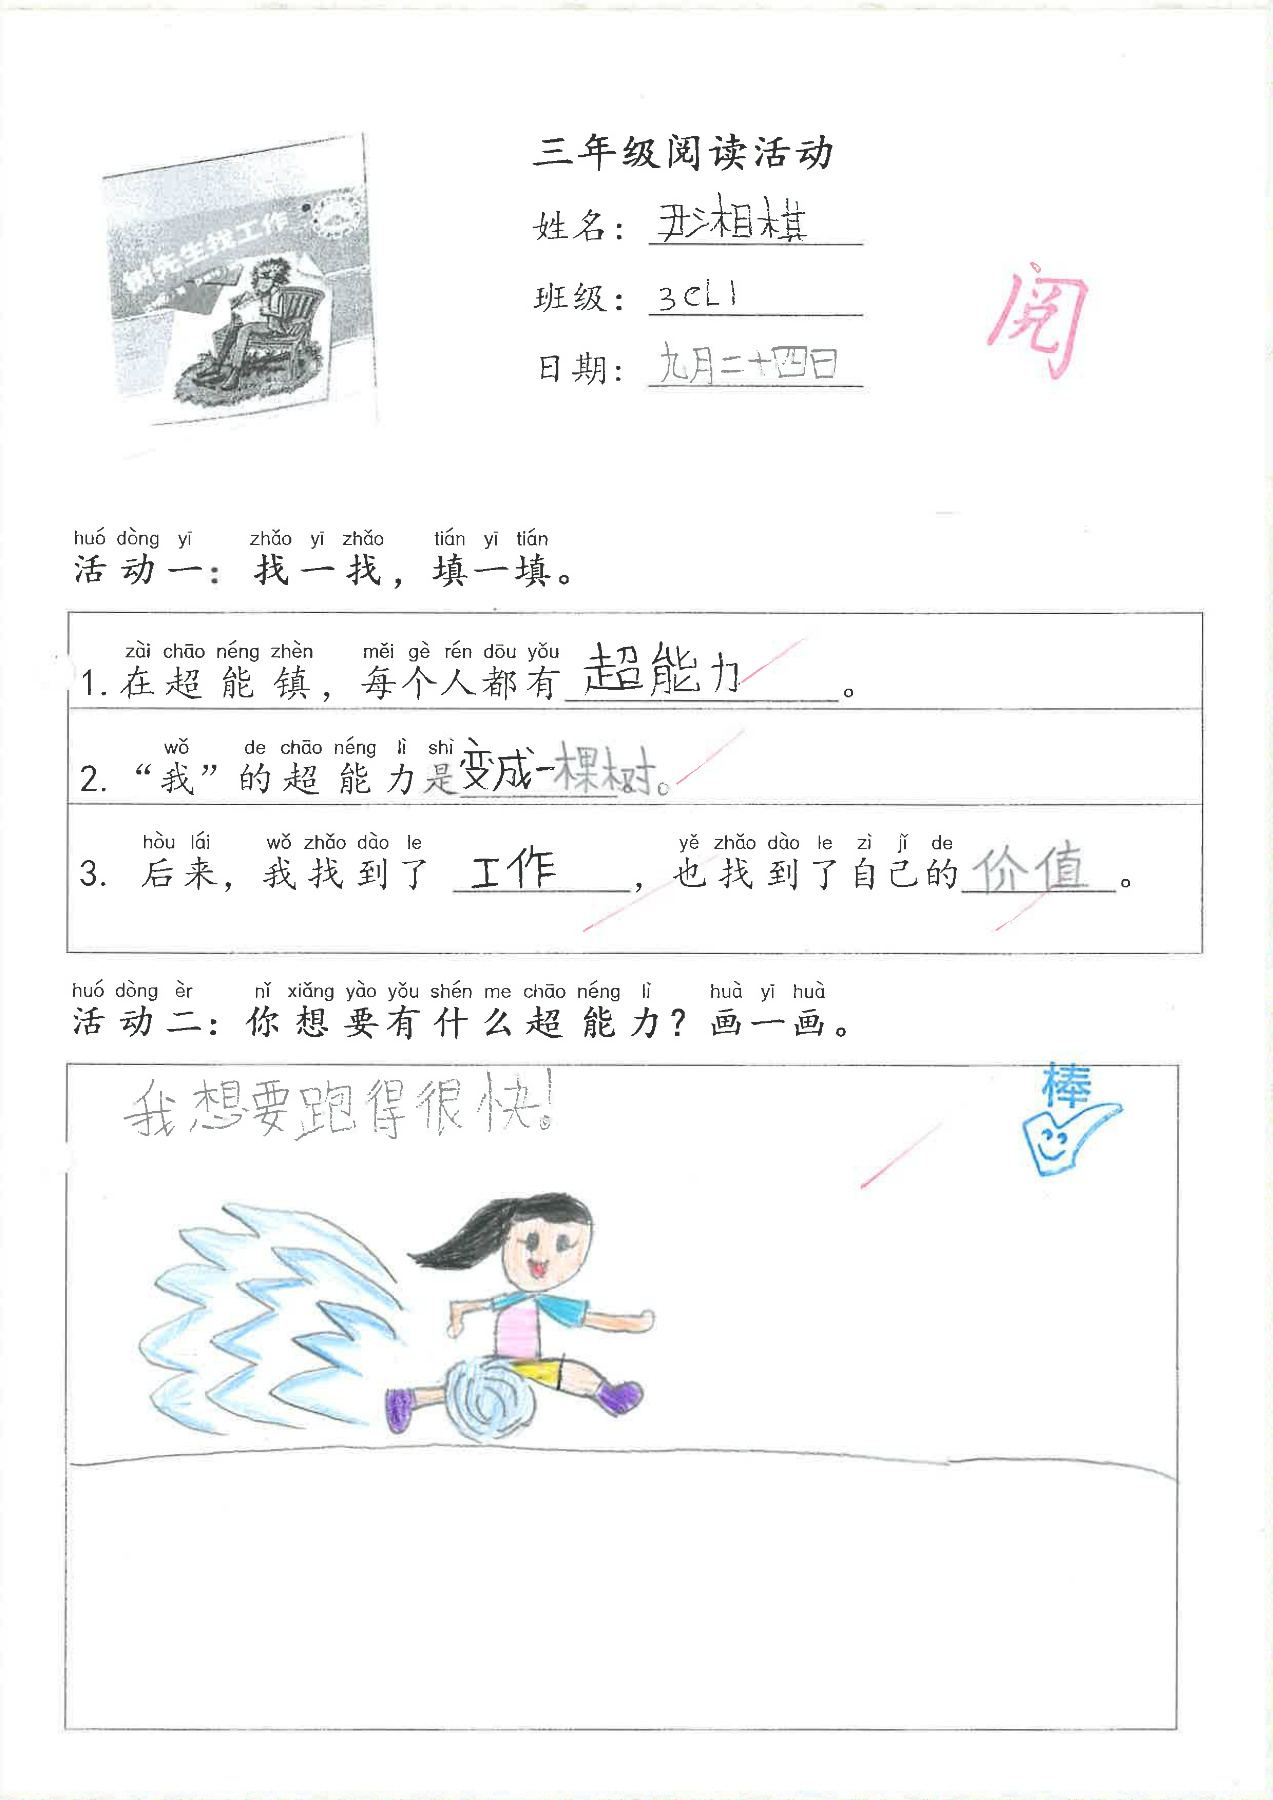 三年级阅读活动
树先生找工作
姓名： 尹湘棋
班级： 3CL1
日期： 九月二十四日
阅
huó dòng yī zhǎo yī zhǎo tián yī tián
活动一：找一找，填一填。
zài chāo néng zhèn měi gè rén dōu yǒu
1. 在超能镇，每个人都有 超能力 。
wǒ de chāo néng lì shì
2. “我”的超能力是变成一棵树。
hòu lái wǒ zhǎo dào le yě zhǎo dào le zì jǐ de
3. 后来，我找到了 工作 ，也找到了自己的 价值 。
huó dòng èr nǐ xiǎng yào yǒu shén me chāo néng lì huà yī huà
活动二：你想要有什么超能力？画一画。
我想要跑得很快!
棒